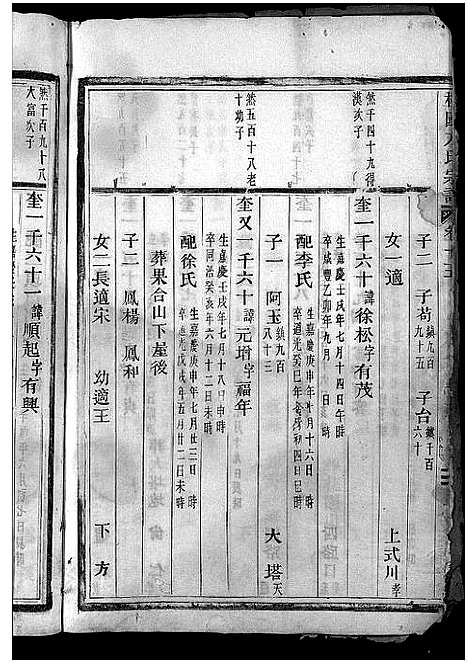 子二 子苟 鎮九百九十五 子台 鎮千百六十
女一適 上式川 孝
煞千四十九得
漢次子
奎一千六十 諱徐松字有茂
生嘉慶壬戌年七月十四日午時
卒咸豐乙卯年九月 日 時
配李氏
生嘉慶庚申年 月十六日 時
卒道光癸巳年 月初四日巳時
子一 阿玉 鎮九百八十三 大塔 天
煞五百十八老
十幼子
奎又一千六十 諱元增字福年
生嘉慶壬戌年七月十八日申時
卒同治癸亥年六月十二日未時
配徐氏
生嘉慶庚申年七月廿三日 時
卒道光戊戌年五月廿二日未時
葬果合山下屋後
子二 鳳楊 鳳和
女二長適宋 幼適王 下方
煞千百九十八
大富次子
奎一千六十一 諱順起字有興